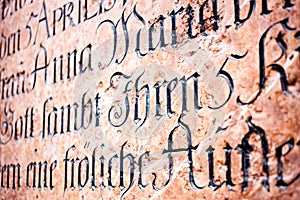 den 5 APRIL
Frau Anna Maria
Gott sambt Ihren 5 K
eine fröliche Aufe